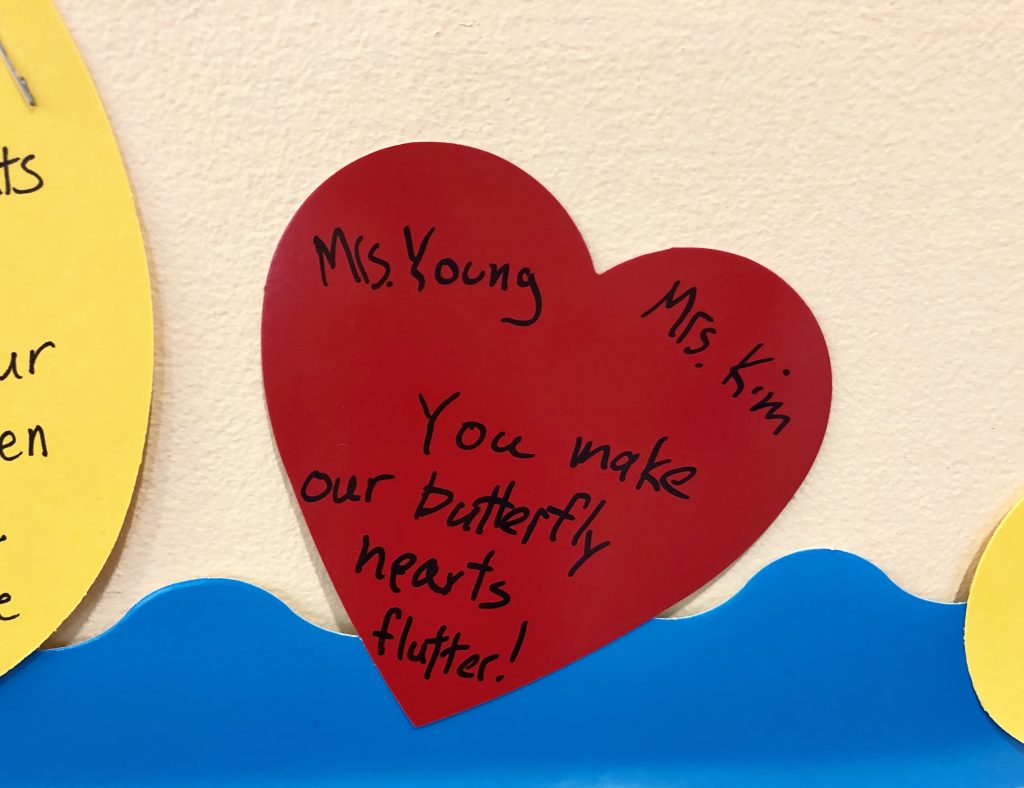 ts
ur
en
e
Mrs. Young
Mrs. Kim
You make
our butterfly
hearts
flutter!